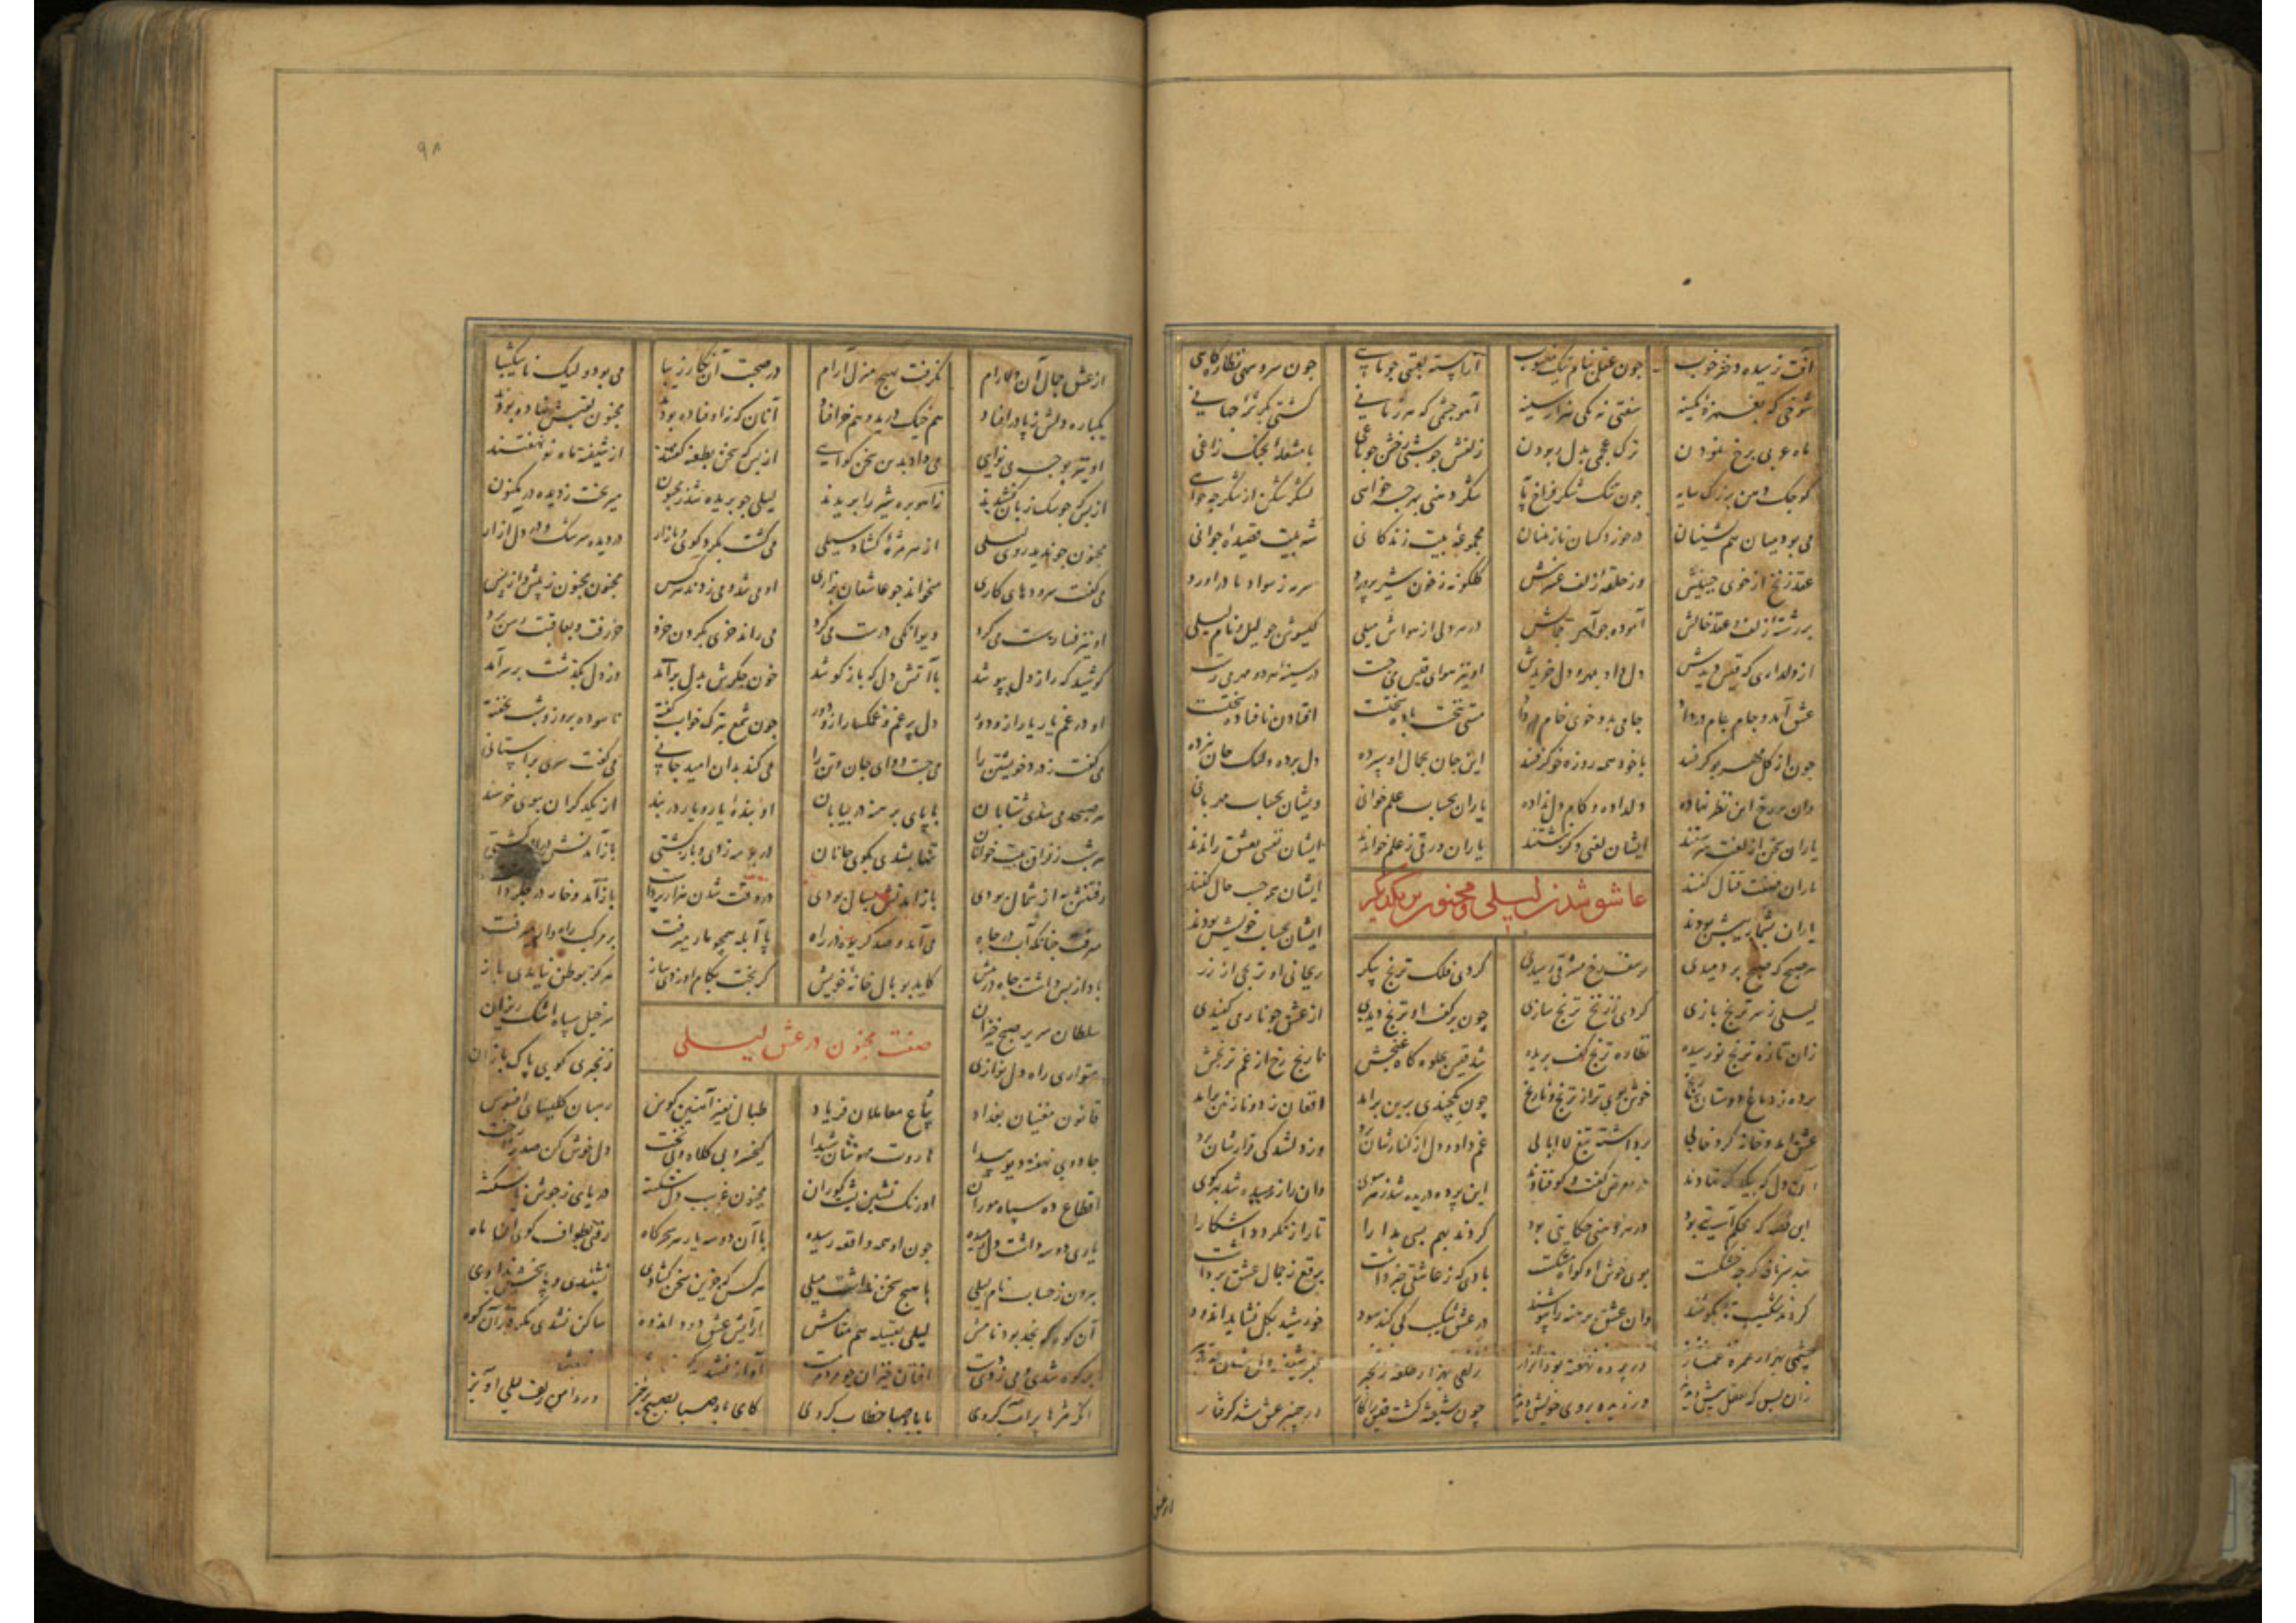 آفت نرسیده دختر خوب چون عقل بنام نیک منسوب آراسته لعبتی چو ماهی چون سرو سهی نظاره کاهی
شوخی که بغمزه کمینه سفتی نه یکی هزار سینه آهو چشمی که هر زمانی کشتی بکرشمه جهانی
ماه عربی برخ نمودن ترک عجمی بدل ربودن زلفش چو شبی رخش چراغی با مشعله بچنک زاغی
کوچک دهن بزرک سایه چون تنک شکر فراخ شکر دهنی بهر چه خواهی لشکر شکن از شکر چه خواهی
می بود میان هم نشینان در خورد کمان نازنینان مجموعه بیت زندکانی شه بیت قصیده جوانی
عقد زنخ از خوی جبینش وز حلقه زلف عنبرینش کلکونه ز خون شیر پرورد سرمه ز سواد مادر آورد
بر رشته زلف و عقد خالش آموده جواهر جمالش در هر دلی از هواش میلی کیسوش چو لیل و نام لیلی
از دلداری که قیس دیدش دل داد و بمهر دل خریدش او نیز هوای قیس می جست در سینه هر دو مهر می رست
عشق آمد و جام خام در داد جامی بدو خوی خام مستی نخست باده سختست افتادن نافتاده سختست
چون از کل مهر بو کرفتند با خود همه روزه خو کرفتند این جان بجمال او سپرده دل برده ولیک جان نبرده
وان بر رخ این نظر نهاده دلداده و کام دل نداده یاران بحساب علم خوانی ویشان بحساب مهربانی
یاران سخن از لغت سرشتند ایشان لغتی دکر نوشتند یاران ورقی ز علم خواندند ایشان نفسی بعشق راندند
یاران صفت فعال کفتند ایشان همه حسب حال کفتند
یاران بشمار پیش بودند ایشان بحساب خویش بودند
عاشق شدن لیلی و مجنون بر یکدیکر
هر صبح که صبح بر دمیدی یوسف رخ مشرقی رسیدی کردی فلک ترنج پیکر ریحانی او ترنجی از زر
لیلی ز سر ترنج بازی کردی ز زنخ ترنج سازی چون بر کف او ترنج دیدی از عشق چو نار می کفیدی
زان تازه ترنج نو رسیده نظاره ترنج کف بریده شد قیس بجلوه کاه غنجش نارنج رخ از غم ترنجش
برده ز دماغ دوستان رنج خوش بوی تر از ترنج و نارنج چون یکچندی برین برآمد افغان ز دو نازنین برآمد
عشق آمد و خانه کرد خالی برداشته تیغ لاابالی غم داد و دل از کنارشان برد وز دلشدکی قرارشان برد
آن دل که بیکدکر نهادند در معرض کفت و کو فتادند این پرده دریده شد ز هر سوی وان راز شنیده شد بهر کوی
این قصه که محکم آیتی بود در هر دهنی حکایتی بود کردند بهم بسی مدارا تا راز نکردد آشکارا
بند سر نافه کرچه خشکست بوی خوش او کواه مشکست بادی که ز عاشقی خبر داشت برقع ز جمال عشق برداشت
کردند شکیب تا بکوشند وان عشق برهنه را بپوشند در عشق شکیب کی کند سود خورشید بکل نشاید اندود
چشمی بهزار غمزه غماز در پرده نهفته چون بود راز زلفی بهزار حلقه زنجیر
زان پس که عقل پیش دیدند دزدیده بروی خویش دیدند چون شیفته کشت قیس را کار در چنبر عشق شد کرفتار
از عشق
۹۸
از عشق جمال آن دلارام نکرفت هیچ منزل آرام در صحبت آن نکار زیبا می بود ولیک ناشکیبا
یکباره دلش ز پا درافتاد هم خیک درید و هم خر افتاد آنان که نیوفتاده بودند مجنون لقبش نهاده بودند
او نیز بوجه بی نوایی می داد بدین سخن کوایی از بس که سخن بطعنه کفتند از شیفته ماه نو نهفتند
از بس که چو سک زبان کشیدند زآهو بره شیر را بریدند لیلی چو بریده شد ز مجنون می ریخت ز دیده در مکنون
مجنون چو ندید روی لیلی از هر مژه کشاد سیلی می کشت بکرد کوی و بازار در دیده سرشک و در دل آزار
می کفت سرودهای کاری میخواند چو عاشقان بزاری او می شد و می زدند هر کس مجنون مجنون ز پیش و از پس
او نیز فسار سست می کرد دیوانکی درست می کرد می راند خری بکردن خرد خر رفت و بعاقبت رسن برد
کوشید که راز دل بپوشد با آتش دل که باز کوشد خون جکرش بدل برآمد وز دل بکذشت و بر سر آمد
او در غم یار و یار ازو دور دل پر غم و غمکسار ازو دور چون شمع بترک خواب کفته ناسوده بروز و شب نخفته
می کفت ز درد خویشتن را می جست دوای جان و تن را می کند بدان امید جانی می کفت سری بر آستانی
هر صبحدمی شدی شتابان با پای برهنه در بیابان او بنده یار و یار در بند از یکدکران ببوی خرسند
هر شب ز فراق بیت خوانان تنها بشدی بکوی جانان در بوسه زدی و بازکشتی بازآمدنش دراز کشتی
رفتنش به از شمال بودی بازآمدنش بسال بودی در وقت شدن هزار برداشت بازآمد و خار در
میرفت چنانکه آب در چاه می آمد و صد کریوه در راه پا آبله همچو یار میرفت بر مرکب راهوار میرفت
باد از پس داشت چاه در پیش کامد بوبال خانه خویش کر بخت بکام او زدی ساز هرکز بوطن نیامدی باز
صفت مجنون در عشق لیلی
سلطان سریر صبح خیزان سر خیل سپاه اشک ریزان
متواری راه دل نوازی زنجیری کوی پاک بازان
قانون مغنیان بغداد بیاع معاملان فریاد طبال نفیر آهنین کوس رهبان کلیسیای افسوس
جادوی نهفته دیو پیدا هاروت مهوشان شیدا کیخسرو بی کلاه و بی تخت دل خوش کن صد هزار بی رخت
اقطاع ده سپاه موران اورنک نشین پشت کوران مجنون غریب دل شکسته دریای ز جوش نانشسته
یاری دو سه داشت دل رمیده چون او همه واقعه رسیده با آن دو سه یار هر سحرکاه رفتی بطواف کوی آن ماه
بیرون ز حساب نام لیلی با هیچ سخن نداشت میلی هر کس که جزین سخن کشادی نشنیدی و پاسخش ندادی
آن کوه که نجد بود نامش لیلی بقبیله هم مقامش از آتش عشق و دود اندوه ساکن نشدی مکر در آن کوه
بر کوه شدی و می زدی دست افتان خیزان چو مردم مست آواز نشید
اشک مژها پر آب کردی با باد صبا خطاب کردی کای باد صبا بصبح برخیز در دامن زلف لیلی آویز